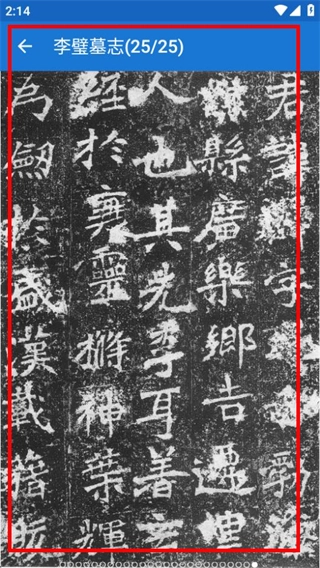 2:14
李璧墓志(25/25)
君諱璧字勃
縣廣樂鄉吉遷里
人也其先李耳著玄
經於靈神葉輝
為於盛漢載籍